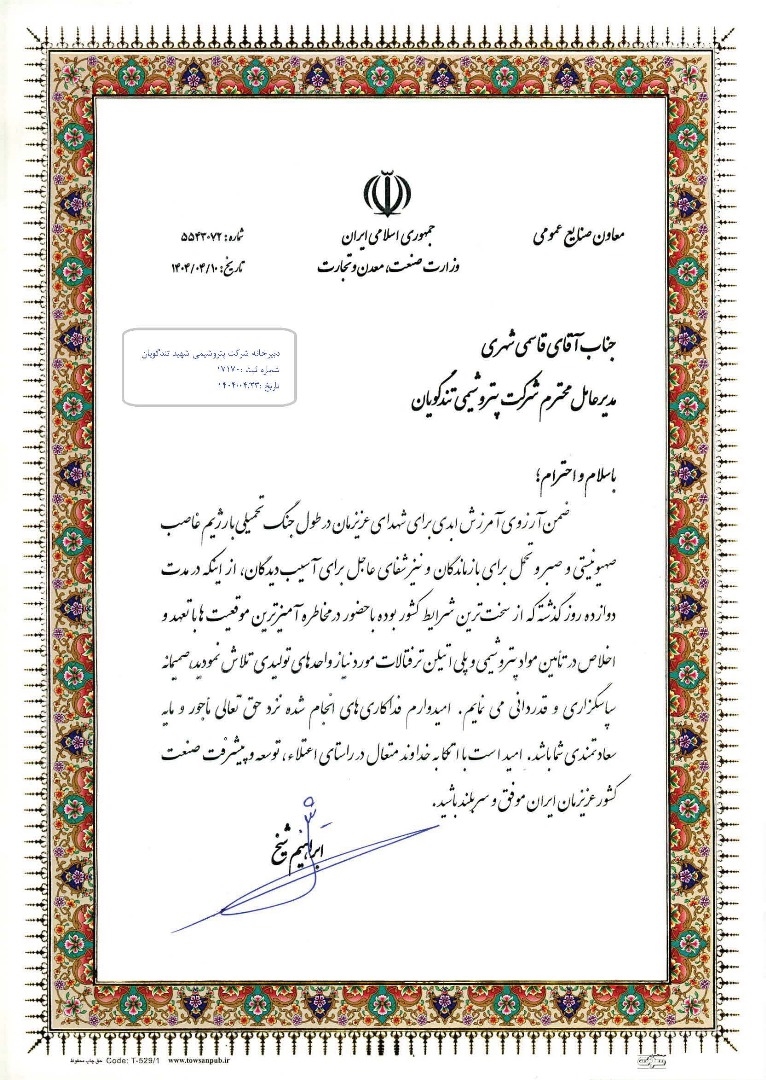 جمهوری اسلامی ایران
وزارت صنعت، معدن و تجارت
معاون صنایع عمومی
شماره: ۵۵۴۳۰۷۲
تاریخ: ۱۴۰۴/۰۴/۱۰
دبیرخانه شرکت پتروشیمی شهید تندگویان
شماره ثبت: ۷۱۷۰
تاریخ: ۱۴۰۴.۰۴.۲۳
جناب آقای قاسمی شهری
مدیرعامل محترم شرکت پتروشیمی تندگویان
باسلام و احترام؛
ضمن آرزوی آمرزش ابدی برای شهدای عزیزمان در طول جنگ تحمیلی با رژیم غاصب
صهیونیستی و صبر و تحمل برای بازماندگان و نیز شفای عاجل برای آسیب دیدگان، از اینکه در مدت
دوازده روز گذشته که از سخت ترین شرایط کشور بوده با حضور در مخاطره آمیزترین موقعیت ها با تعهد و
اخلاص در تأمین مواد پتروشیمی و پلی اتیلن ترفتالات مورد نیاز واحدهای تولیدی تلاش نمودید، صمیمانه
سپاسگزاری و قدردانی می نمایم. امیدوارم فداکاری های انجام شده نزد حق تعالی مأجور و مایه
سعادتمندی شما باشد. امید است با اتکا به خداوند متعال در راستای اعتلاء، توسعه و پیشرفت صنعت
کشور عزیزمان ایران موفق و سربلند باشید.
ابراهیم شیخ
حق چاپ محفوظ Code: T-529/1 www.towsanpub.ir